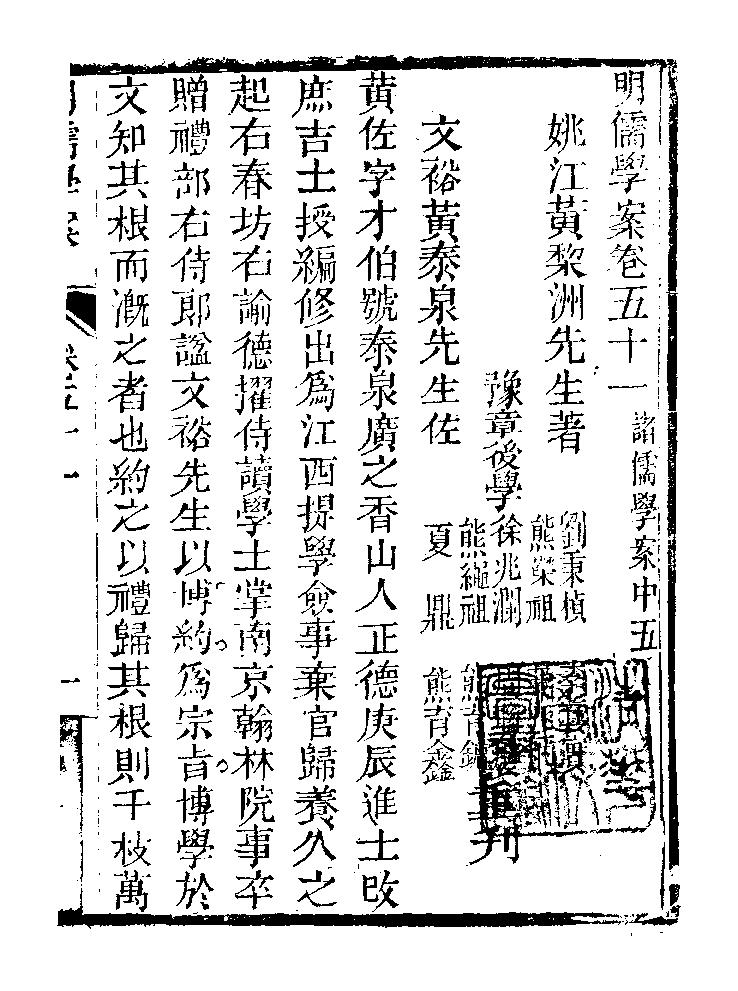 明儒學案卷五十一 諸儒學案中五
姚江黃棃洲先生著
劉秉楨
熊榮祖
豫章後學徐兆瀾
熊繩祖
夏鼎 熊育鑫
重刊
文裕黃泰泉先生佐
黃佐字才伯號泰泉廣之香山人正德庚辰進士改
庶吉士授編修出爲江西提學僉事棄官歸養久之
起右春坊右諭德擢侍讀學士掌南京翰林院事卒
贈禮部右侍郎諡文裕先生以博約爲宗旨博學於
文知其根而漑之者也約之以禮歸其根則千枝萬
明儒學案 卷五十一 一